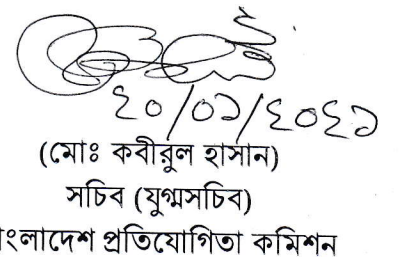 ২০/০১/২০২১
(মোঃ কবীরুল হাসান)
সচিব (যুগ্মসচিব)
াংলাদেশ প্রতিযোগিতা কমিশন